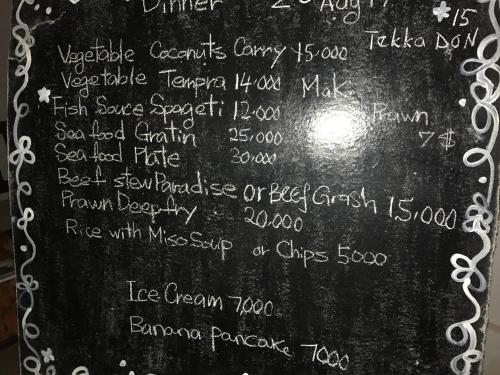 Dinner 2 Aug 17
*15
Tekka DON
Vegetable Coconuts Carry 15,000
Vegetable Tempra 14,000 Maki
Fish Sauce Spageti 12,000 Prawn
Sea food Gratin 25,000 7$
Sea food Plate 30,000
Beef stew Paradise or Beef Grash 15,000
Prawn Deepfry 20,000
Rice with Miso Soup or Chips 5000
Ice Cream 7,000
Banana pancake 7000